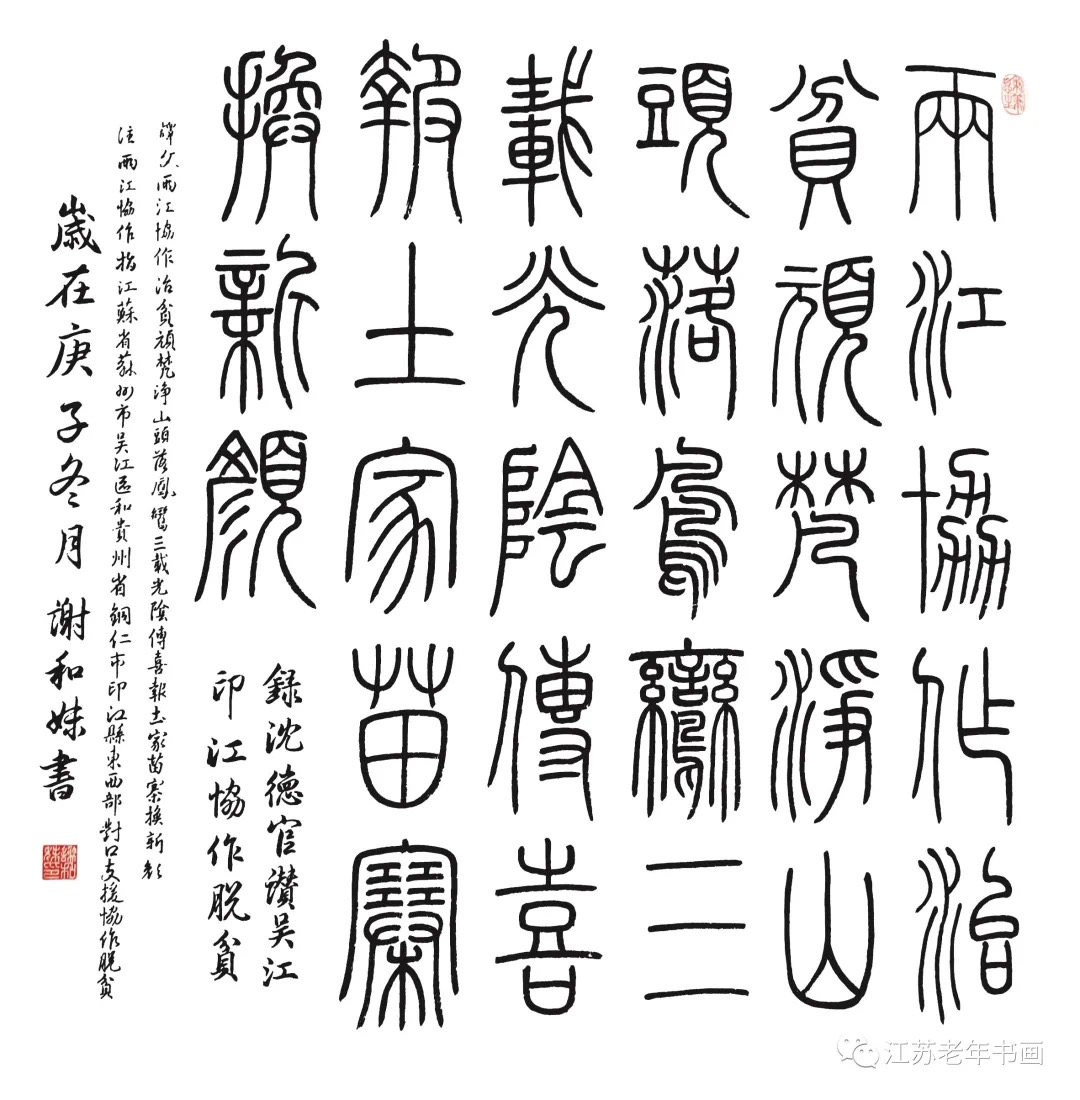 兩江協作治
貧頑梵淨山
頭落鳳鸞三
載光陰傳喜
報土家苗寨
換新顏
錄沈德官讚吳江
印江協作脫貧
釋文兩江協作治貧頑梵淨山頭落鳳鸞三載光陰傳喜報土家苗寨換新顏
注兩江協作指江蘇省蘇州市吳江區和貴州省銅仁市印江縣東西部對口支援協作脫貧
歲在庚子冬月謝和妹書
江苏老年书画